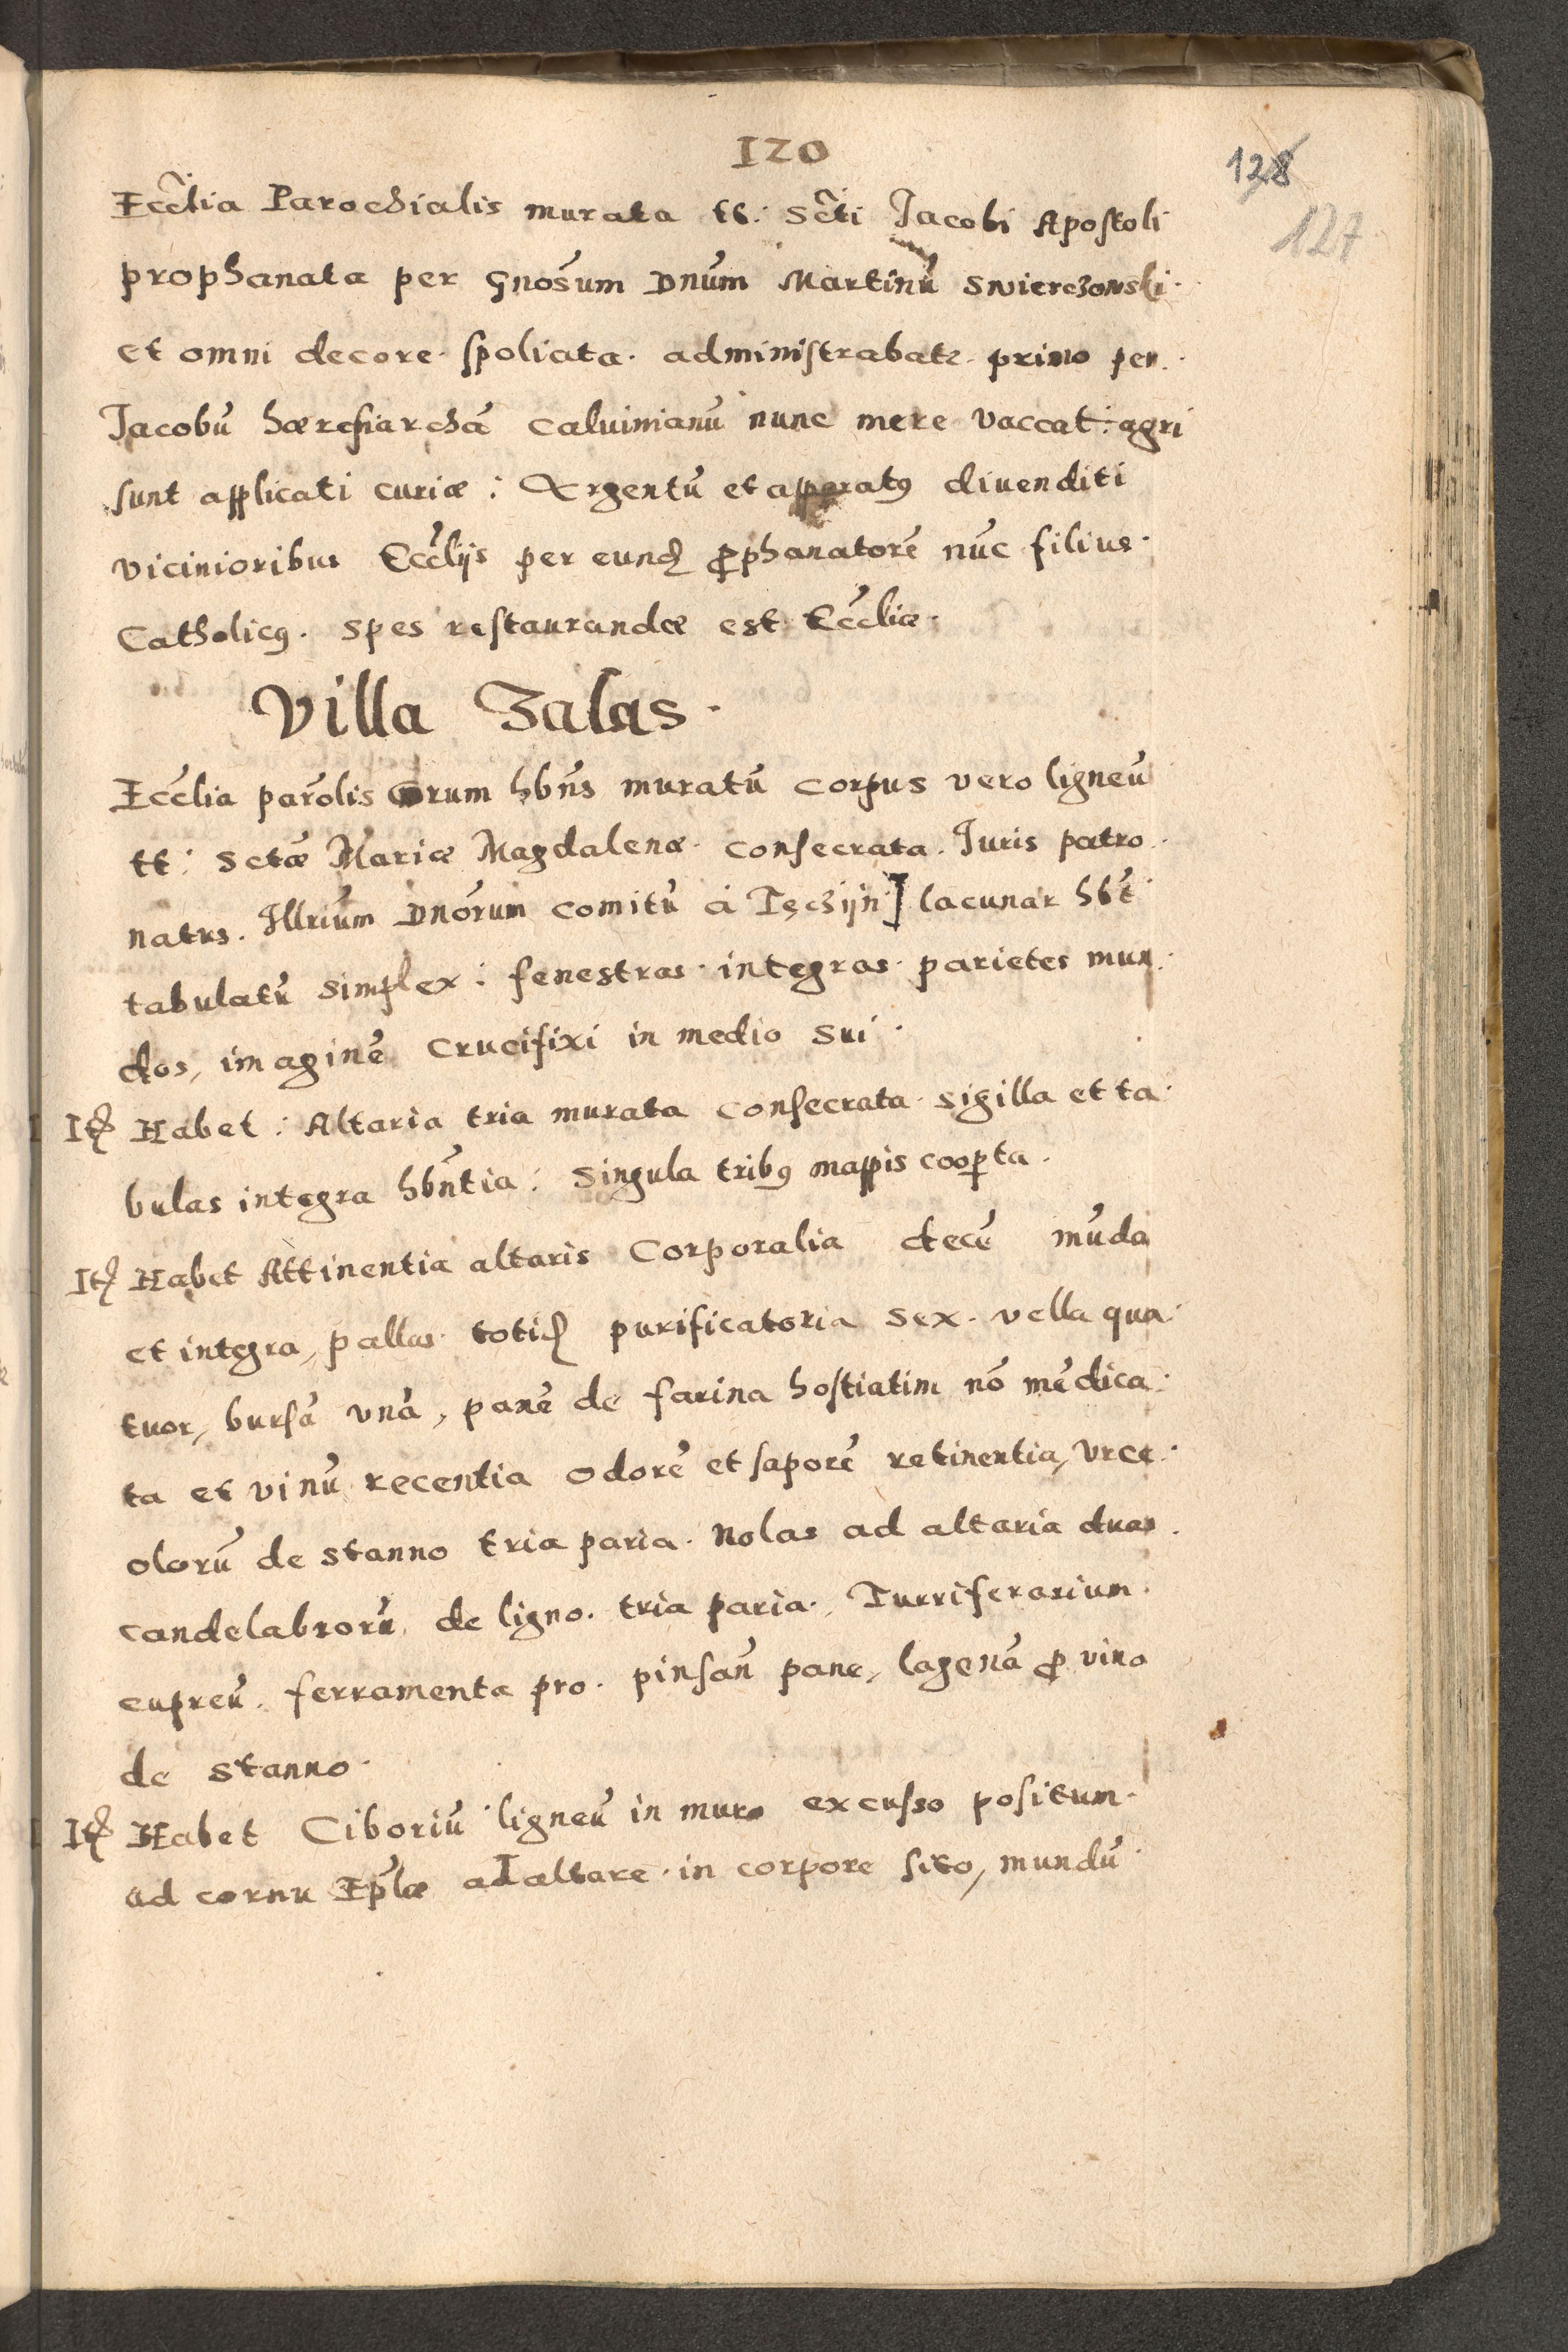 120
128
127
Eccl̃ia Parochialis murata tt: Scti Jacobi Apostoli
prophanata per Gnosum Dnum Martinũ Swierczowski.
et omni decore spoliata. administrabatr. primo per.
Jacobũ hæresiarchã calvinianũ nunc mere vaccat: agri
sunt applicati curiæ: Argentũ et apparatꝰ divenditi
vicinioribus Ecclijs per eund ꝓphanatorẽ nũc filius.
Catholicꝰ. spes restaurandæ est Eccliæ.
Villa Zalas.
Ecclia parolis Chorum hbñs muratũ corpus vero ligneũ
tt: Sctæ Mariæ Magdalenæ. consecrata. Juris patro.
natus. Illrium Dnorum comitũ à Tęczijn] lacunar hbt
tabulatũ simplex: fenestras. integras. parietes mun.
dos, imaginẽ Crucifixi in medio sui.
Itẽ Habet: Altaria tria murata consecrata sigilla et ta.
bulas integra hbñtia: Singula tribꝰ mappis coopta.
Itẽ Habet Attinentia altaris Corporalia decẽ mũda
et integra, pallas. totid purificatoria sex. vella qua.
tuor, bursã vnã, panẽ de farina hostiatim nõ mẽdica.
ta et vinũ recentia odorẽ et saporẽ retinentia, vrce.
olorũ de stanno tria paria. Nolas ad altaria duas.
candelabrorũ de ligno. tria paria., Turriferarium.
cupreũ. ferramenta pro. pinsan̄ pane, lagenã ꝓ vino
de stanno.
Itẽ Habet Ciboriũ ligneũ in muro excusso positum.
ad cornu Eplæ ad altare. in corpore sito, mundũ